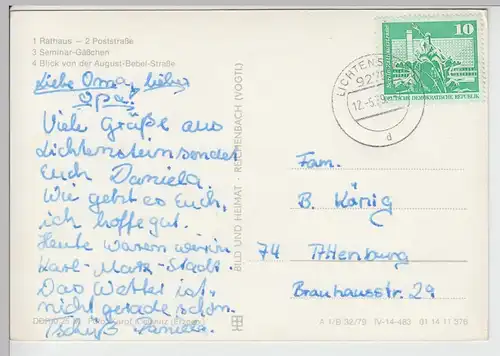 1 Rathaus — 2 Poststraße
3 Seminar-Gäßchen
4 Blick von der August-Bebel-Straße
Liebe Oma, lieber
Opa!
Viele Grüße aus
Lichtenstein sendet
Euch Daniela.
Wie geht es Euch,
ich hoffe gut.
Heute waren wir in
Karl-Marx-Stadt.
Das Wetter ist
nicht gerade schön.
Tschüß Daniela.
BILD UND HEIMAT · REICHENBACH (VOGTL)
LICHTENST
12.-5.
d
10
DEUTSCHE DEMOKRATISCHE REPUBLIK
Fam.
B. König
74 Altenburg
Brauhausstr. 29
A 1/B 32/79 IV-14-483 01 14 11 376